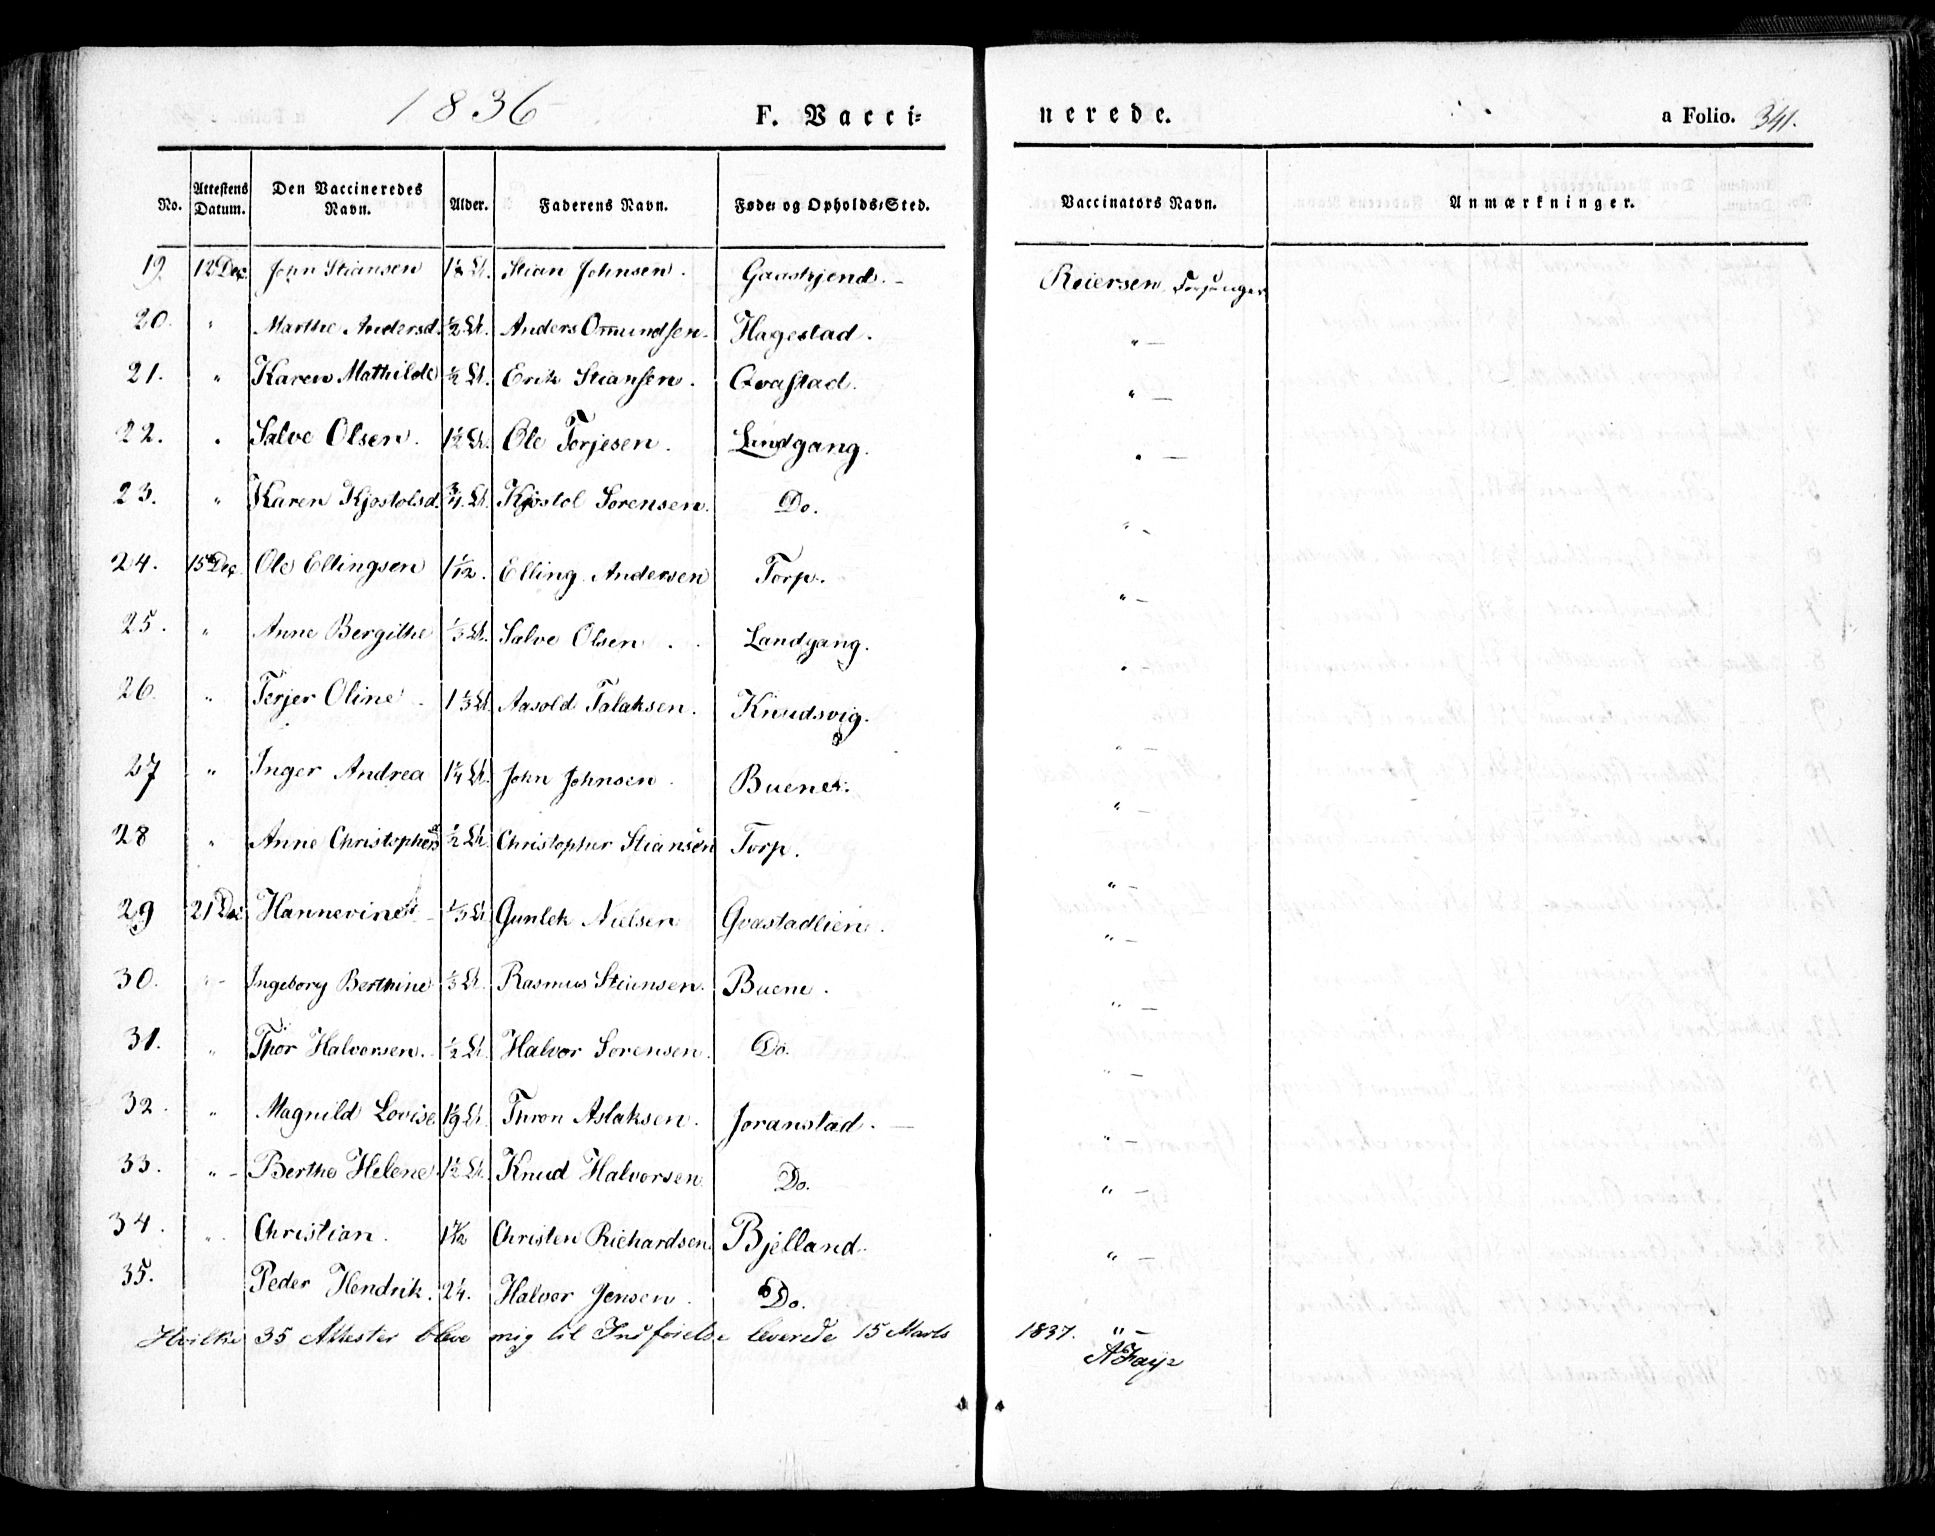 1836 F. Vacci= nerede. a Folio. 341.
No. Attestens Datum. Den Vaccineredes Navn. Alder. Faderens Navn. Føde= og Opholds=Sted. Vaccinators Navn. Anmærkninger.
19. 12 Dec. John Stiansen 1½ Stian Johnsen. Reiersen
20. " Marthe Andersd. ½ Anders Omundsen. Hagestad. " —
21. " Karen Mathilde ½ Erik Stiansen. Qvastad. " —
22. " Salve Olsen. 1½ Ole Torjesen. Landgang. " —
23. " Karen Kjostolsd. ¾ Kjostol Sorensen. Do. " -
24. 15 Dec. Ole Ellingsen 1 1/12. Elling Andersen Torp. " -
25. " Anne Bergithe ⅓ Salve Olsen Landgang. " —
26. " Terjer Oline 1⅓ Aasold Talaksen. Knudsvig. " —
27 " Inger Andrea 1¼ John Johnsen. Buene. " —
28 " Anne Christophersd ½ Christopher Stiansen Torp. " —
29 21 Dec Hannevine ⅓ Gunlek Nielsen Qvastadlien. " —
30. " - Ingeborg Berthine ⅔ Rasmus Stiansen. Buene. " —
31. " Thor Halvorsen. ½ Halvor Sorensen. Do. " —
32. " Magnild Lovise Thron Aslaksen. Joranstad. — " —
33. " - Berthe Helene 1½ Knud Halvorsen Do. " —
34. " Christian. Christen Richardsen. Bjelland. " —
35. Peder Hendrik. 2¼. Halvor Jensen. Do. " —
Hvilke 35 Attester bleve mig til Indførelse leverede 15 Marts 1837.